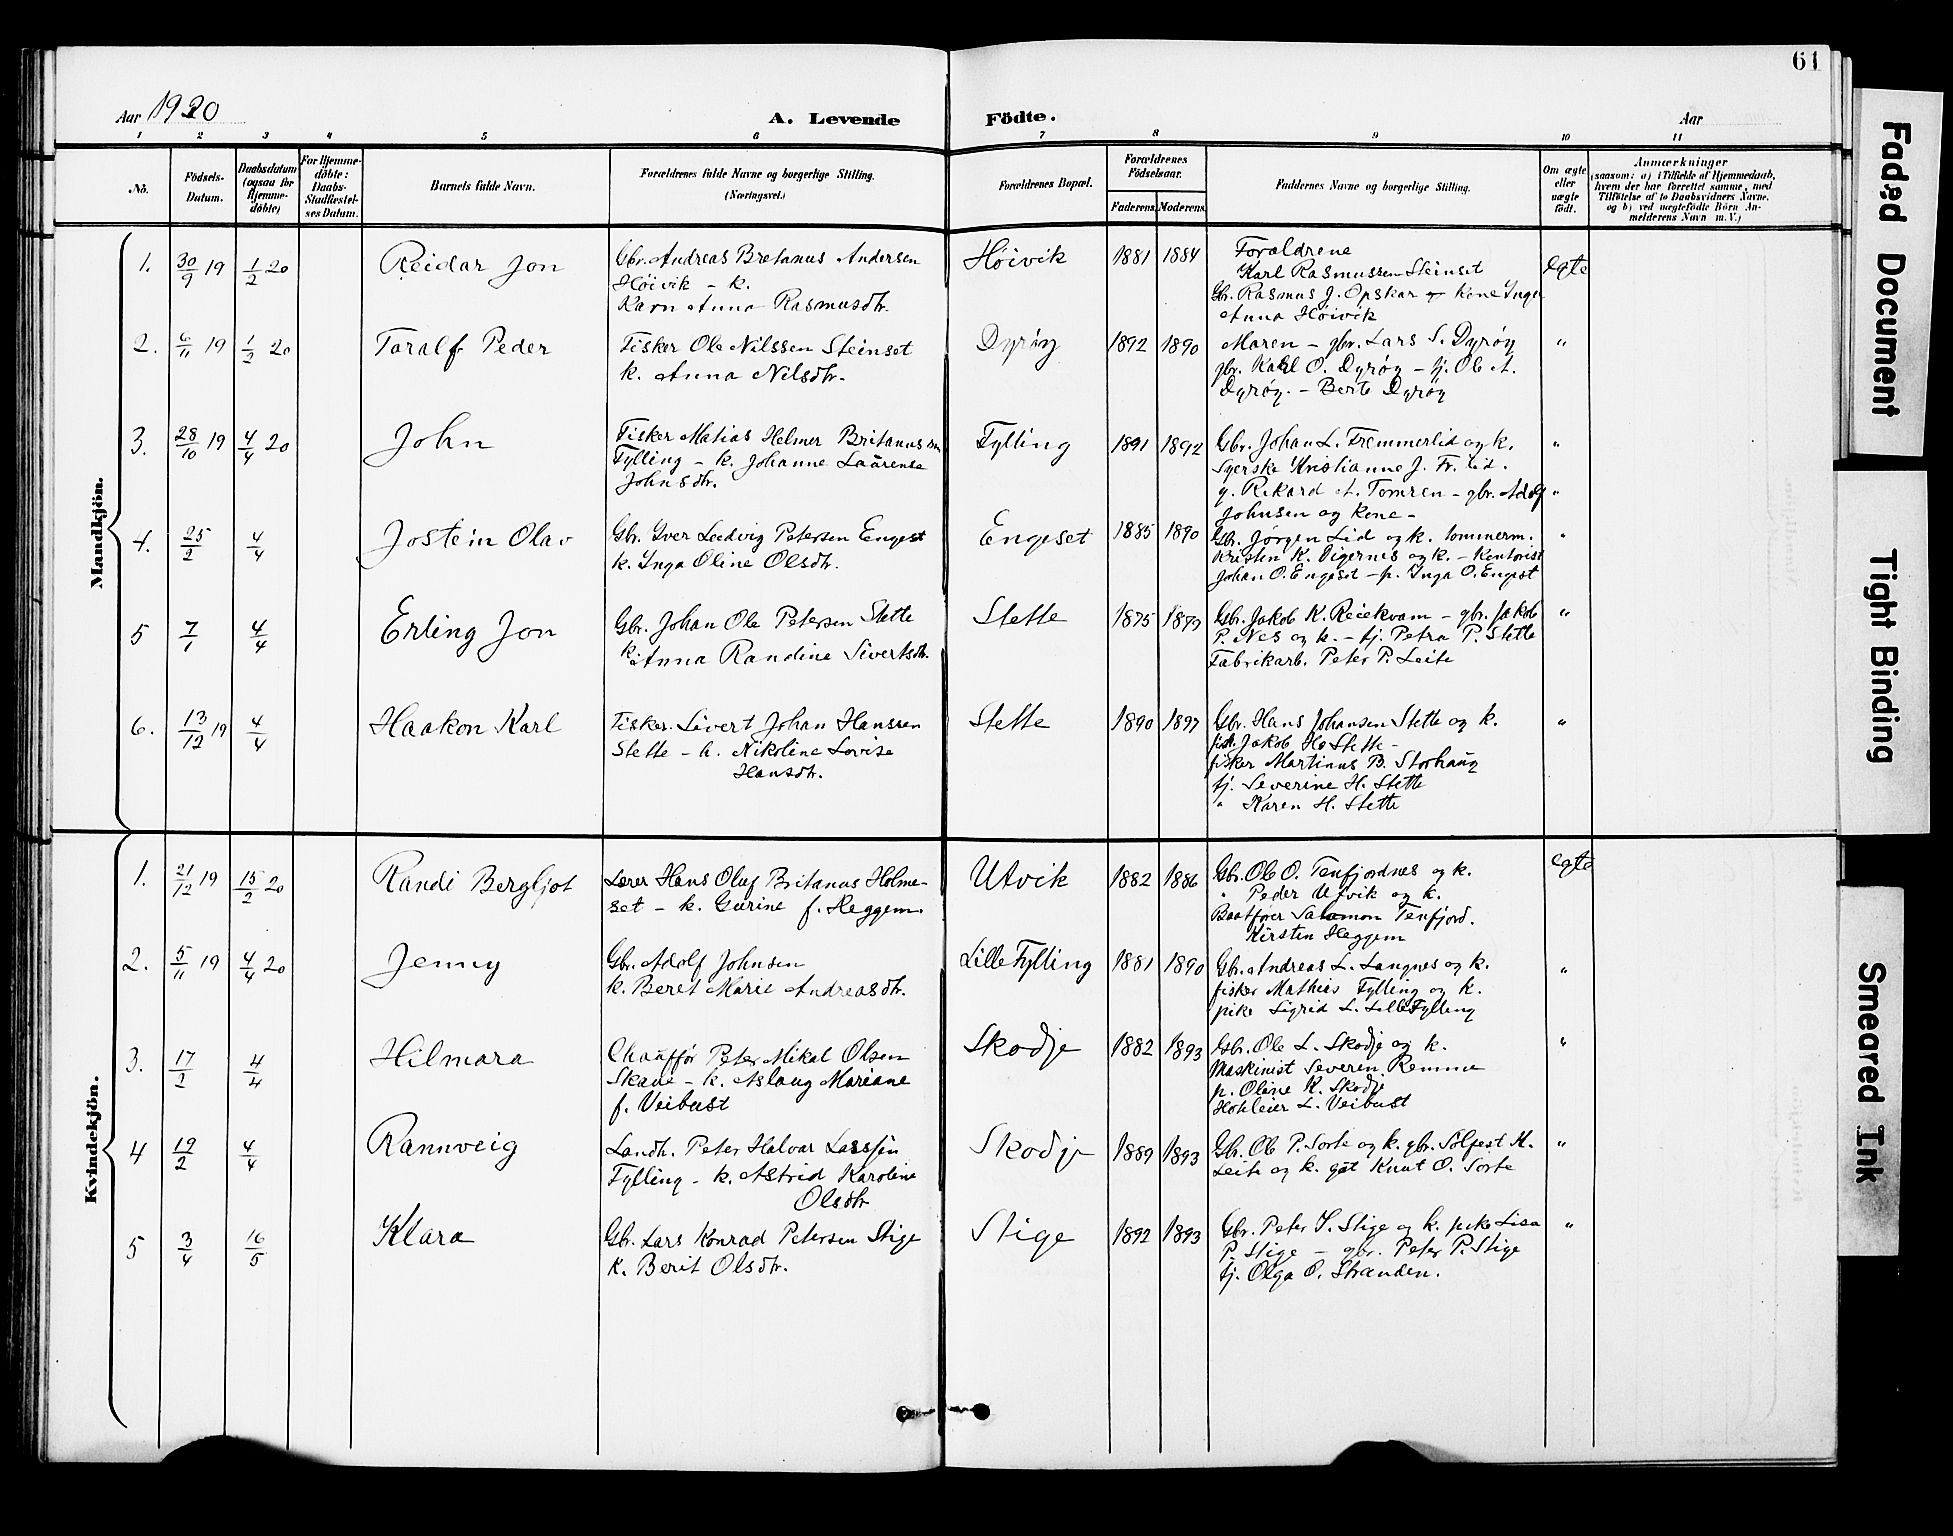 61
Aar 1920
A. Levende Födte.
Aar
1 2 3 4 5 6 7 8 9 10 11
Nô. Födsels-Datum. Daabsdatum (ogsaa for Hjemme-döbte) For Hjemme-döbte: Daabs-Stadfæstel-ses Datum. Barnets fulde Navn. Forældrenes fulde Navne og borgerlige Stilling. (Næringsvei.) Forældrenes Bopæl. Forældrenes Födselsaar. Faderens. Moderens. Faddernes Navne og borgerlige Stilling. Om ægte eller uægte födt. Anmærkninger
(saasom: a) i Tilfælde af Hjemmedaab, hvem der har forrettet samme, med Tilföielse af to Daabsvidners Navne, og b) ved uægtefödte Börn An-melderens Navn m. V.)
Mandkjön.
1. 30/9 19 1/2 20 Reidar Jon
Gbr. Andreas Bretanus Andersen
Höivik - k.
Karn Anna Rasmusdtr.
Höivik 1881 1884
Forældrene
Karl Rasmussen Steinset
Gbr. Rasmus J. Opskar og Kone Inga
Anna Höivik
egte
2. 6/11 19 1/2 20 Toralf Peder
Fisker Ole Nilssen Steinset
k. Anna Nilsdtr.
Dyröy 1892 1890
Maren - gbr. Lars S. Dyröy
gbr. Karl O. Dyröy - tj. Ole A.
Dyröy. - Berte Dyröy
"
3. 28/10 19 4/4 20 John
Fisker Matias Helmer Britanussen
Fylling - k. Johanne Laurense
Johnsdtr.
Fylling 1891 1892
Gbr. Johan L. Fremmerlid og k.
Syerske Kristianne J. Fr. lid.
g. Rikard A. Tomren - gbr. Adolf
Johnsen og Kone -
"
4. 25/2 4/4 Jostein Olav
Gbr. Iver Ludvig Petersen Engeset
k. Inga Oline Olsdtr.
Engeset 1885 1890
Gbr. Jörgen Lid og k. tömmerm.
Kristen K. Digernes og k. - Kontorist
Johan O. Engeset - p. Inga O. Engeset
"
5 7/1 4/4 Erling Jon
Gbr. Johan Ole Petersen Stette
k. Anna Randine Sivertsdtr.
Stette 1875 1879
Gbr. Jakob K. Reiekvam - gbr. Jakob
P. Nes og k. - tj. Petra P. Stette
Fabrikarb. Peter P. Leite
"
6. 13/12 19 4/4 Haakon Karl
Fisker Sivert Johan Hanssen
Stette - k. Nikoline Lovise
Hansdtr.
Stette 1890 1897
Gbr. Hans Johansen Stette og k.
fisk. Jakob H. Stette -
fisker Martinus B. Storhaug
tj. Severine H. Stette
" Karen H. Stette
"
Kvindekjön.
1. 21/12 19 15/2 20 Randi Bergljot
Lærer Hans Oluf Britanus Holme-
set - k. Gurine f. Heggem.
Utvik 1882 1886
Gbr. Ole O. Tenfjordnes og k.
" Peder Utvik og k.
Baatförer Salomon Tenfjord.
Kirsten Heggem
egte
2. 5/11 19 4/4 20 Jenny
Gbr. Adolf Johnsen
k. Beret Marie Andreasdtr.
Lille Fylling 1881 1890
Gbr. Andreas L. Langnes og k.
fisker Mathias Fylling og k.
pike Sigrid L. Lille Fylling
"
3. 17/2 4/4 Hilmara
Chaufför Peter Mikal Olsen
Skaue - k. Aslaug Mariane
f. Veibust
Skodje 1882 1893
Gbr. Ole L. Skodje og k.
Maskinist Severin Remme
p. Oline K. Skodje
L. Veibust
"
4 19/2 4/4 Rannveig
Landh. Peter Halvar Larssen
Fylling - k. Astrid Karoline
Olsdtr
Skodje 1889 1893
Gbr. Ole P. Sorte og k. gbr. Solfest H.
Leite og k. gåt Knut O. Sorte
"
5 3/4 16/5 Klara
Gbr. Lars Konrad Petersen Stige
k. Berit Olsdtr.
Stige 1892 1893
Gbr. Peter S. Stige og k. pike Lisa
P. Stige - gbr. Peter P. Stige
tj. Olga O. Stranden.
"
Faded Document
Tight Binding
Smeared Ink